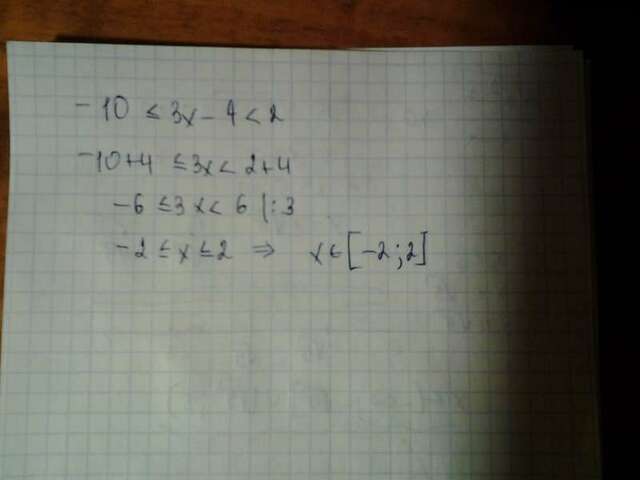 -10 ≤ 3x - 4 < 2
-10+4 ≤ 3x < 2+4
-6 ≤ 3x < 6 |:3
-2 ≤ x ≤ 2 ⇒ x∈[-2;2]